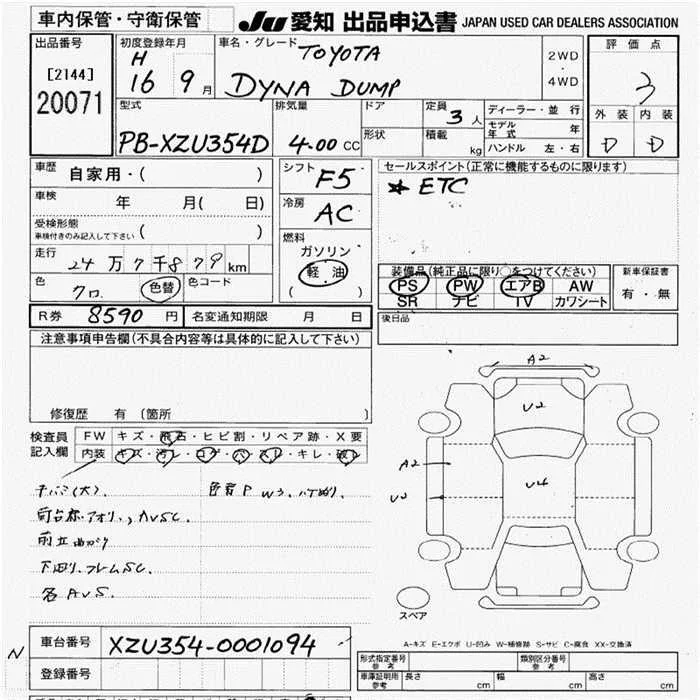 車内保管・守衛保管
JU 愛知 出品申込書 JAPAN USED CAR DEALERS ASSOCIATION
出品番号
[2144]
20071
初度登録年月
H
16 9月
車名・グレード
TOYOTA
DYNA DUMP
2WD
・
4WD
評価点
3
外装 内装
D D
型式
PB-XZU354D
排気量
4.00 CC
ドア
形状
定員
3人
積載
kg
ディーラー・並行
モデル年式 年
ハンドル 左・右
車歴 自家用・( )
車検 年 月( 日)
受検形態
車検付きのみ記入して下さい ( )
走行
24万7千879km
色
クロ
色替
色コード
シフト
F5
冷房
AC
燃料
ガソリン
軽油
( )
セールスポイント(正常に機能するものに限ります)
* ETC
装備品(純正品に限り○をつけてください)
PS PW エアB AW
SR ナビ TV カワシート
新車保証書
有・無
R券 8590円 名変通知期限 月 日
後日品
注意事項申告欄(不具合内容等は具体的に記入して下さい)
修復歴 有 〔箇所 〕
検査員記入欄
FW キズ・飛石・ヒビ割・リペア跡・X要
内装 キズ・汚レ・コゲ・ハ・スレ・キレ・破レ
色替P W3,
AVSC.
前立曲がり
下回り.フレームSC.
各AVS.
A2
U2
A2
U2
U4
スペア
A=キズ E=エクボ U=凹み W=補修跡 S=サビ C=腐食 XX=交換済
N
車台番号 XZU354-0001094
登録番号
形式指定番号 参考
類別区分番号 参考
車庫証明用 参考 長さ cm 幅 cm 高さ cm